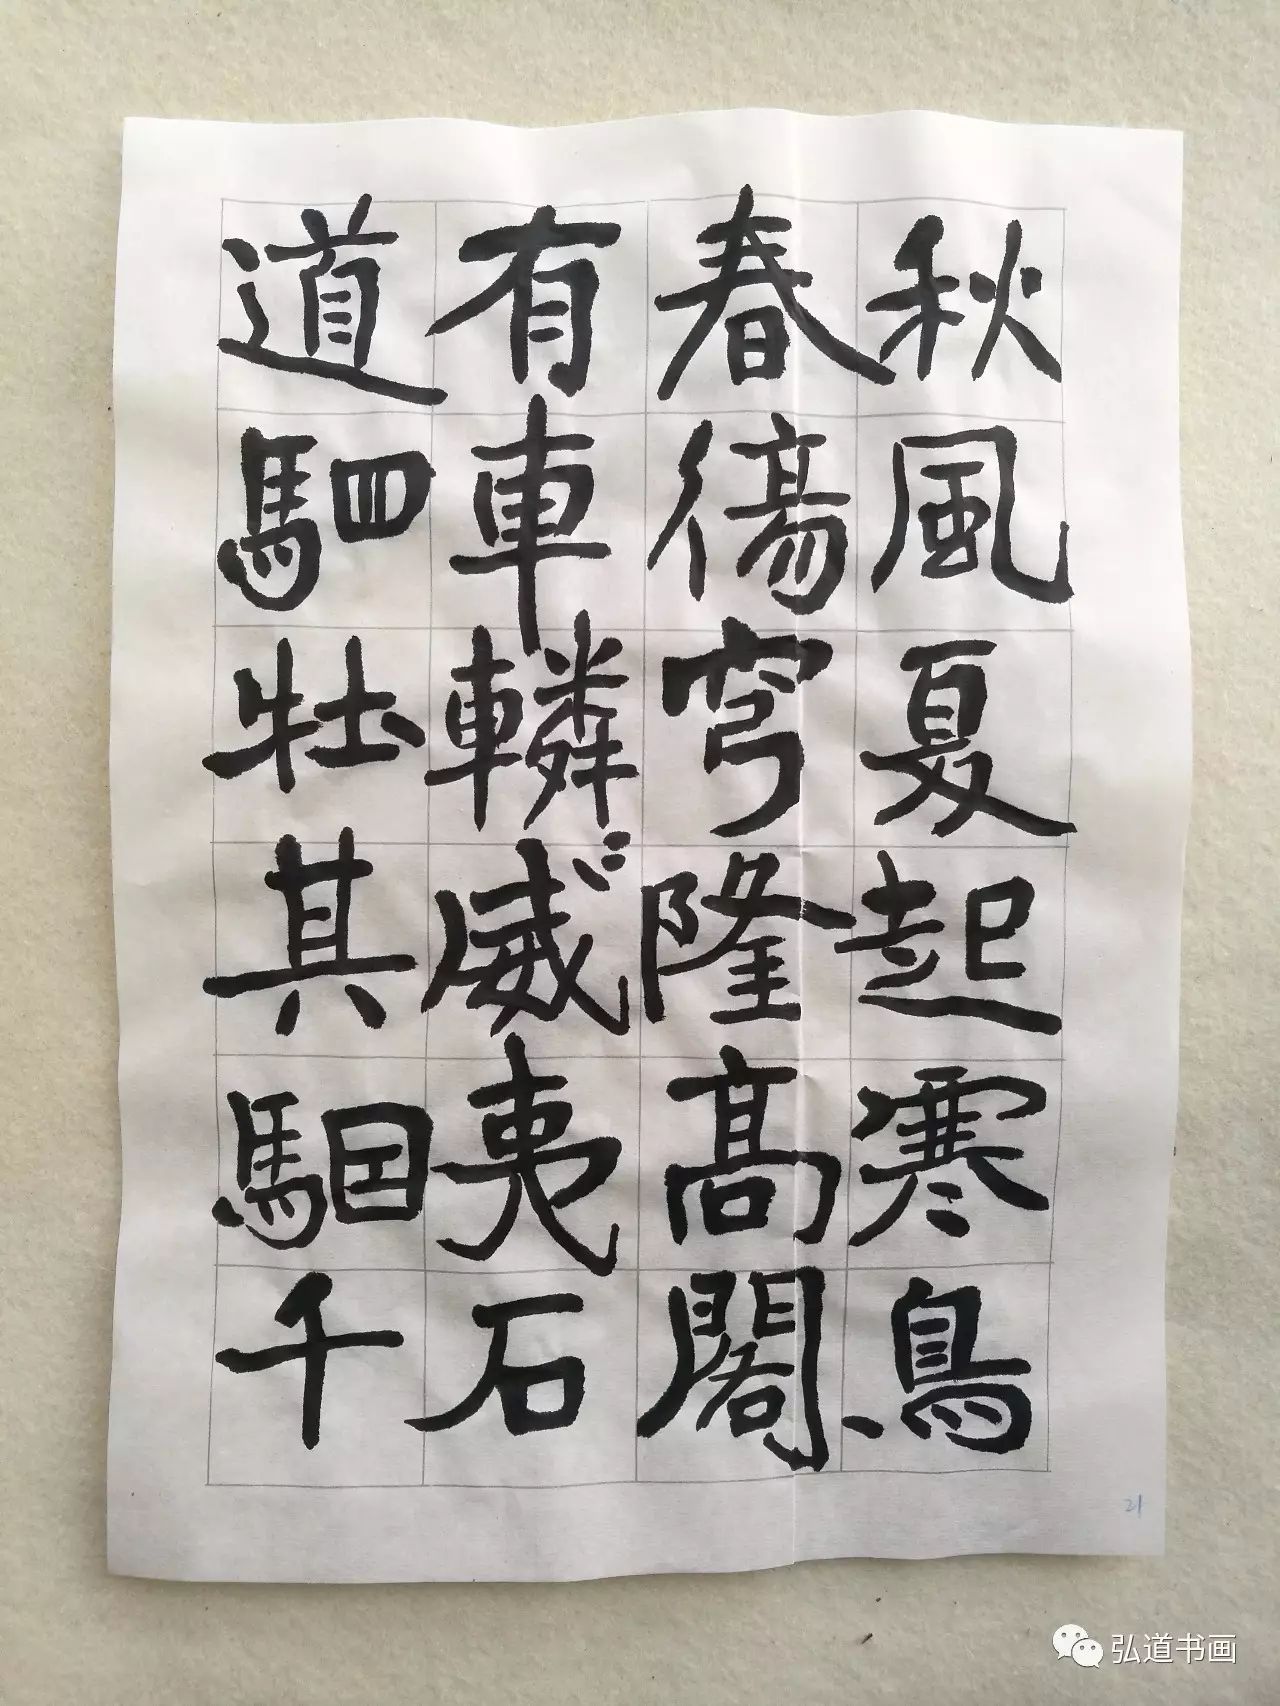 秋風夏起寒鳥
春傷穹隆高閣
有車轔〻威夷石
道駟牡其駰千
21
弘道书画